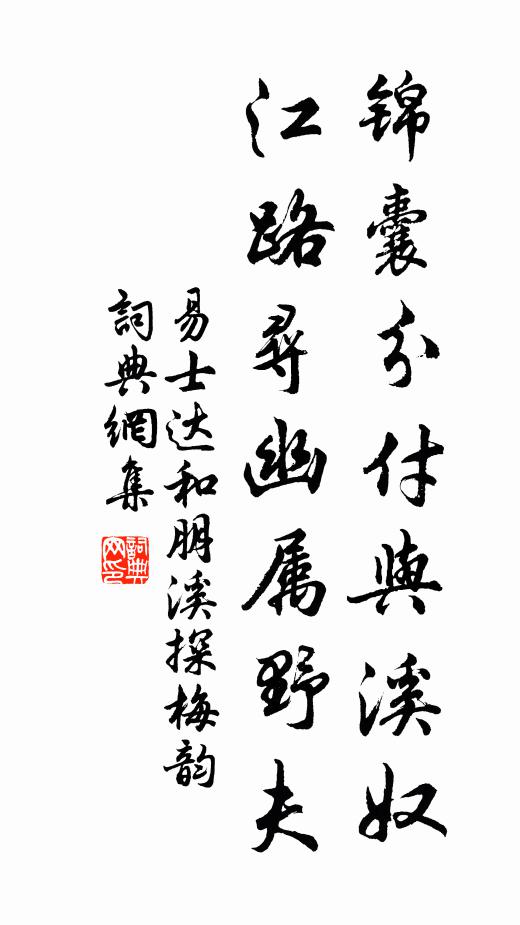 锦囊分付与溪奴
江路寻幽属野夫
易士达和朋溪探梅韵
詞典網集
詞典网印